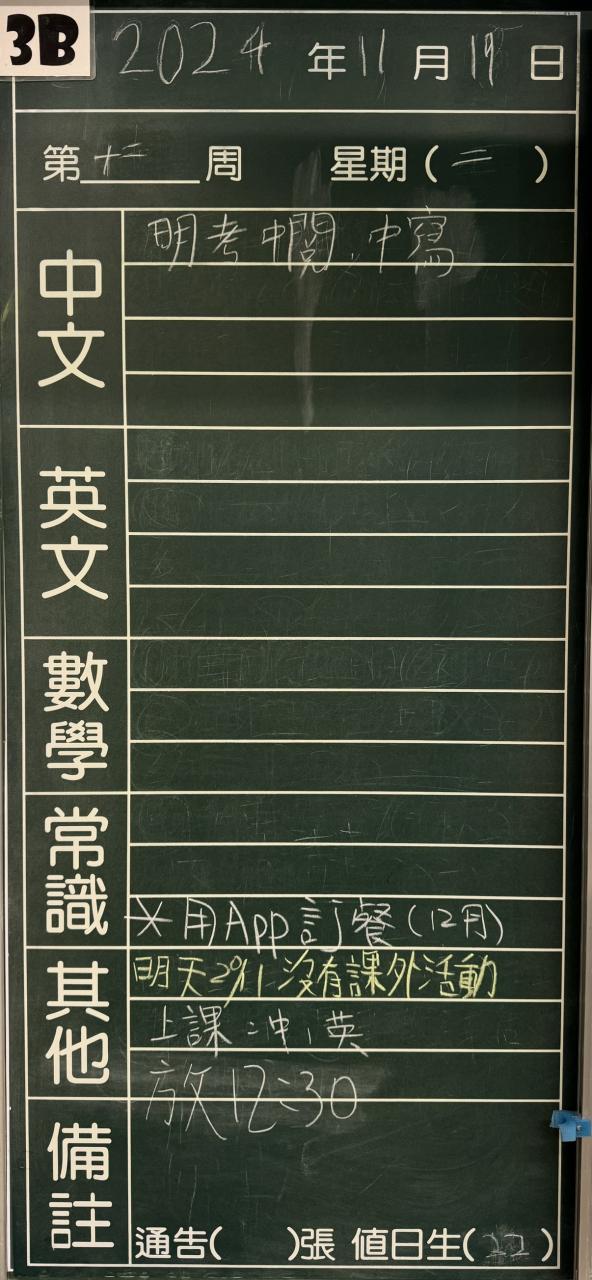 3B
2024年11月19日
第十二周 星期(二)
中文
明考中閱、中寫
英文
數學
常識
*用App訂餐(12月)
其他
明天20/11沒有課外活動
上課:中,英
放12:30
備註
通告( )張 值日生(22)